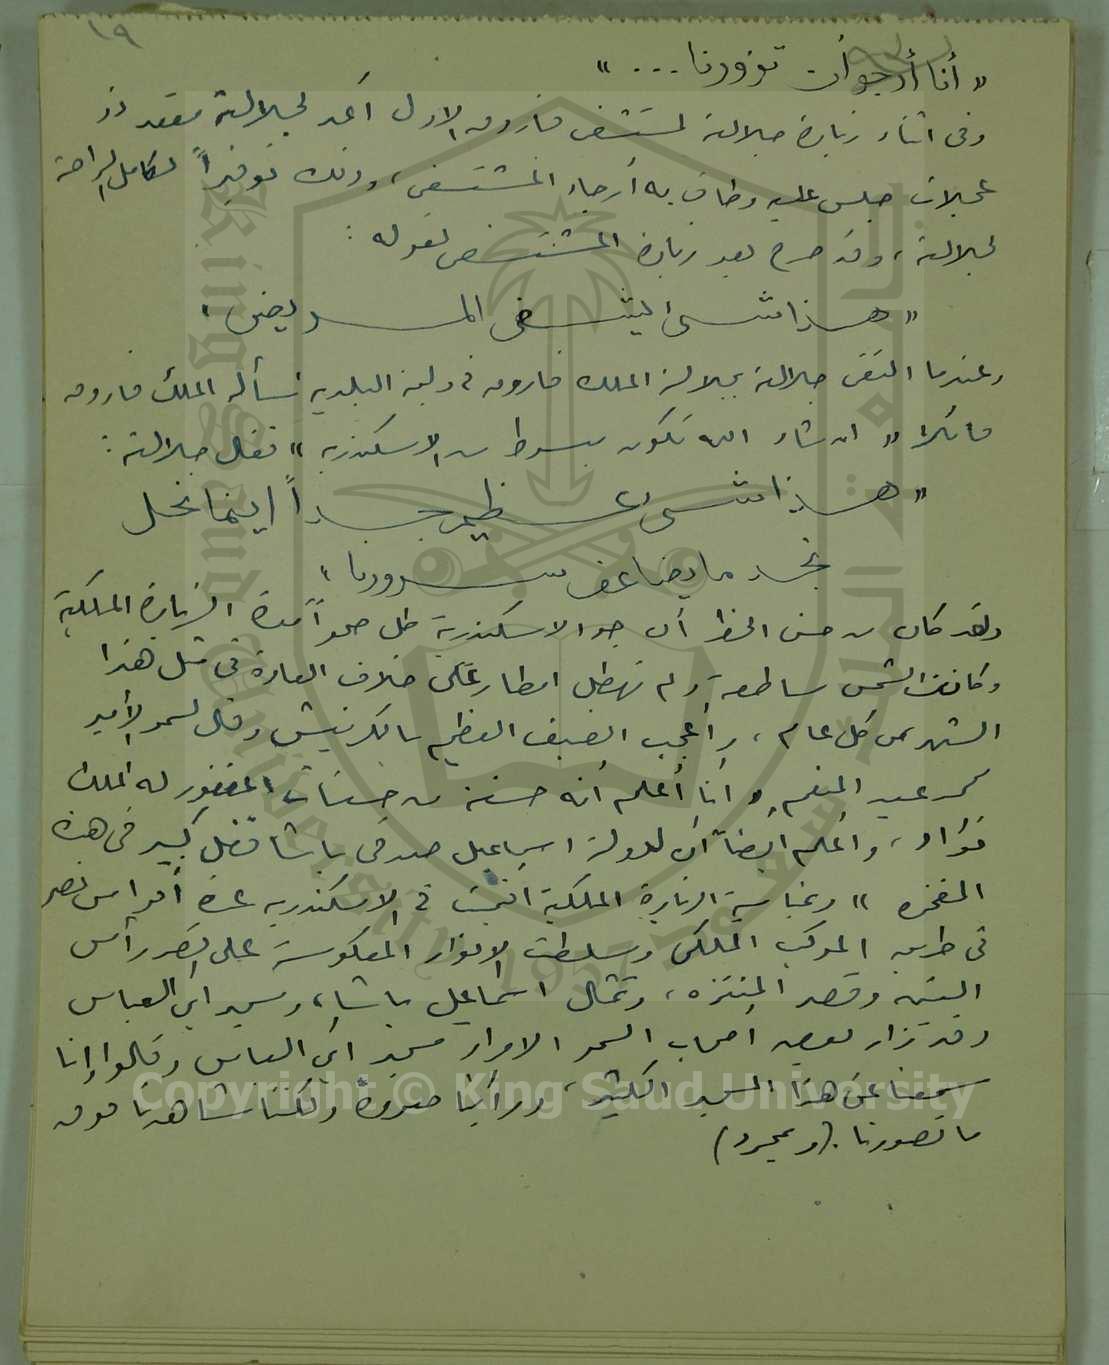 ١٩
« أنا أرجو أن تزورنا ... »
وفى اثناء زيارة جلالته لمستشفى فاروق الاول اعد لجلالته مقعد ذو
عجلات جلس عليه وطاف به أرجاء المستشفى ، وذلك توفيراً لكامل الراحة
لجلالته ، وقد صرح بعد زيارة المستشفى بقوله :
« هذا شىء يشفى المريض »
وعندما التقى جلالته بجلالة الملك فاروق فى وليمة البلدية سأله الملك فاروق
قائلا « ان شاء الله تكون مبسوط من الاسكندرية » فقال جلالته :
« هذا شىء عظيم جداً اينما نحل
نجد ما يضاعف سرورنا »
ولقد كان من حسن الحظ أن جو الاسكندرية ظل صحواً مدة الزيارة الملكية
وكانت الشمس ساطعة ولم تهطل امطار على خلاف العادة فى مثل هذا
الشهر من كل عام ، وأعجب الضيف العظيم بالكرنيش وقال لسمو الأمير
محمد عبد المنعم « أنا أعلم أنه حسنة من حسنات المغفور له الملك
فؤاد ، وأعلم أيضاً أن لدولة اسماعيل صدقى باشا فضل كبير فى هذه
المفخرة » وبمناسبة الزيارة الملكية اقيمت فى الاسكندرية عدة أقواس نصر
فى طريق الموكب الملكى وسلطت الانوار المعكوسة على قصر رأس
التين وقصر المنتزه ، وتمثال اسماعيل باشا ، ومسجد ابى العباس
وقد زار بعض أصحاب السمو الامراء مسجد ابى العباس وقالوا إننا
سمعنا عن هذا المسجد الكثير ، ورأينا صوره ولكننا شاهدنا فوق
ما تصورنا . (و بمجرد)
King Saud University
جامعة الملك سعود
1957
Copyright © King Saud University